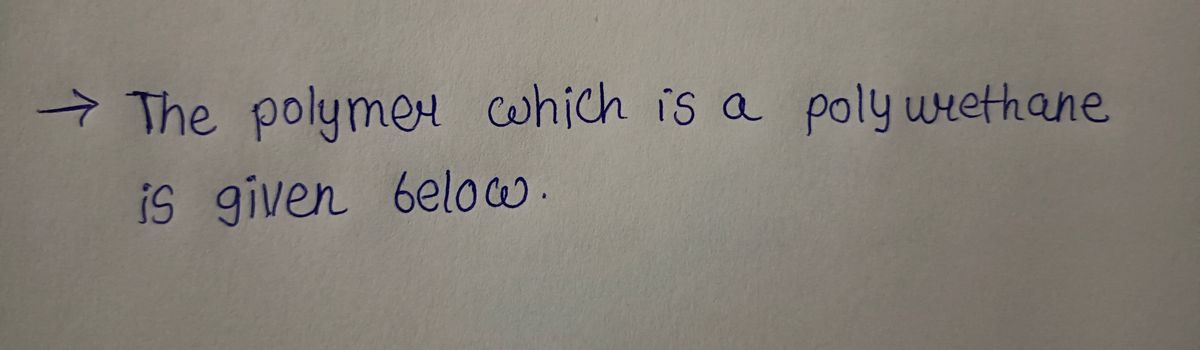 → The polymer which is a polyurethane
is given below.